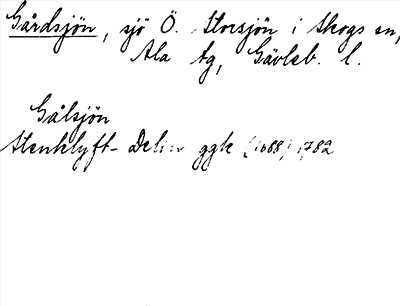 Gårdsjön, sjö Ö. Storsjön i Skogs sn,
Ala tg, Gävleb. l.
Gålsjön
Stenklyft- Delin ggk (1688) 1782